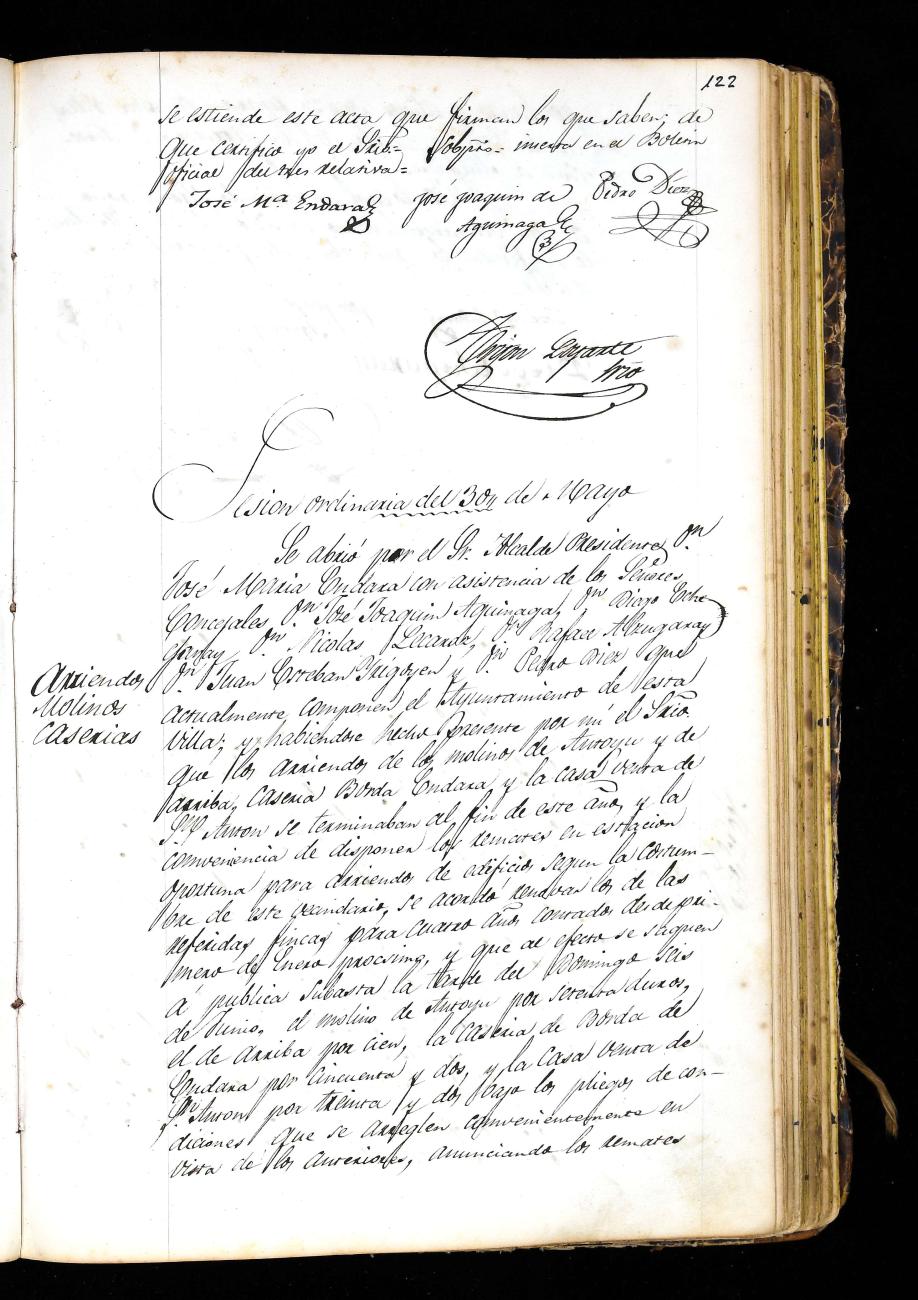 122
se estiende este acta que firman los que saben; de
que certifico yo el Srio.= Sobrrdo.= inserta en el Boletin
oficial del mes relativa=
José Mª Endara
José Joaquin de
Aguinaga
Pedro Diez
Srio
Sesion ordinaria del 30 de Mayo
Se abrió por el Sr. Alcalde Presidente Dn.
José Maria Endara con asistencia de los Señores
Concejales Dn. José Joaquin Aguinaga, Dn. Diego Eche
garay Dn. Nicolas Lecaroz, Dn. Rafael Alzugaray
Dn. Juan Esteban Yrigoyen y Dn. Pedro Diez que
actualmente componen el Ayuntamiento de esta
Arriendos
Molinos
Caserias
villa; y habiendose hecho presente por mí el Srio.
que los arriendos de los molinos de Antoyu y de
arriba, caseria Borda Endara, y la casa venta de
Sn. Anton se terminaban al fin de este año, y la
conveniencia de disponer los remates en estacion
oportuna para arriendos de edificios segun la costum-
bre de este vecindario, se acordó renovar los de las
referidas fincas para cuatro años contados desde pri-
mero de Enero procsimo, y que al efecto se saquen
á publica subasta la tarde del Domingo seis
de Junio, el molino de Antoyu por setenta duros,
el de arriba por cien, la caseria de Borda de
Endara por cincuenta y dos, y la casa venta de
Sn. Anton por treinta y dos bajo los pliegos de con-
diciones que se arreglen convenientemente en
vista de los anteriores, anunciando los remates